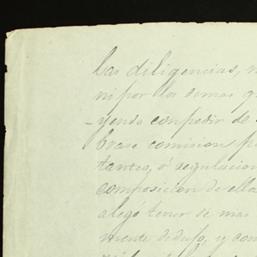 las diligencias, n
ni por los demas q
yendo con pedir de
brase comision p
tantes, ó regulacion
composicion de ella
alegó tener de mas
mente dedujo, y con